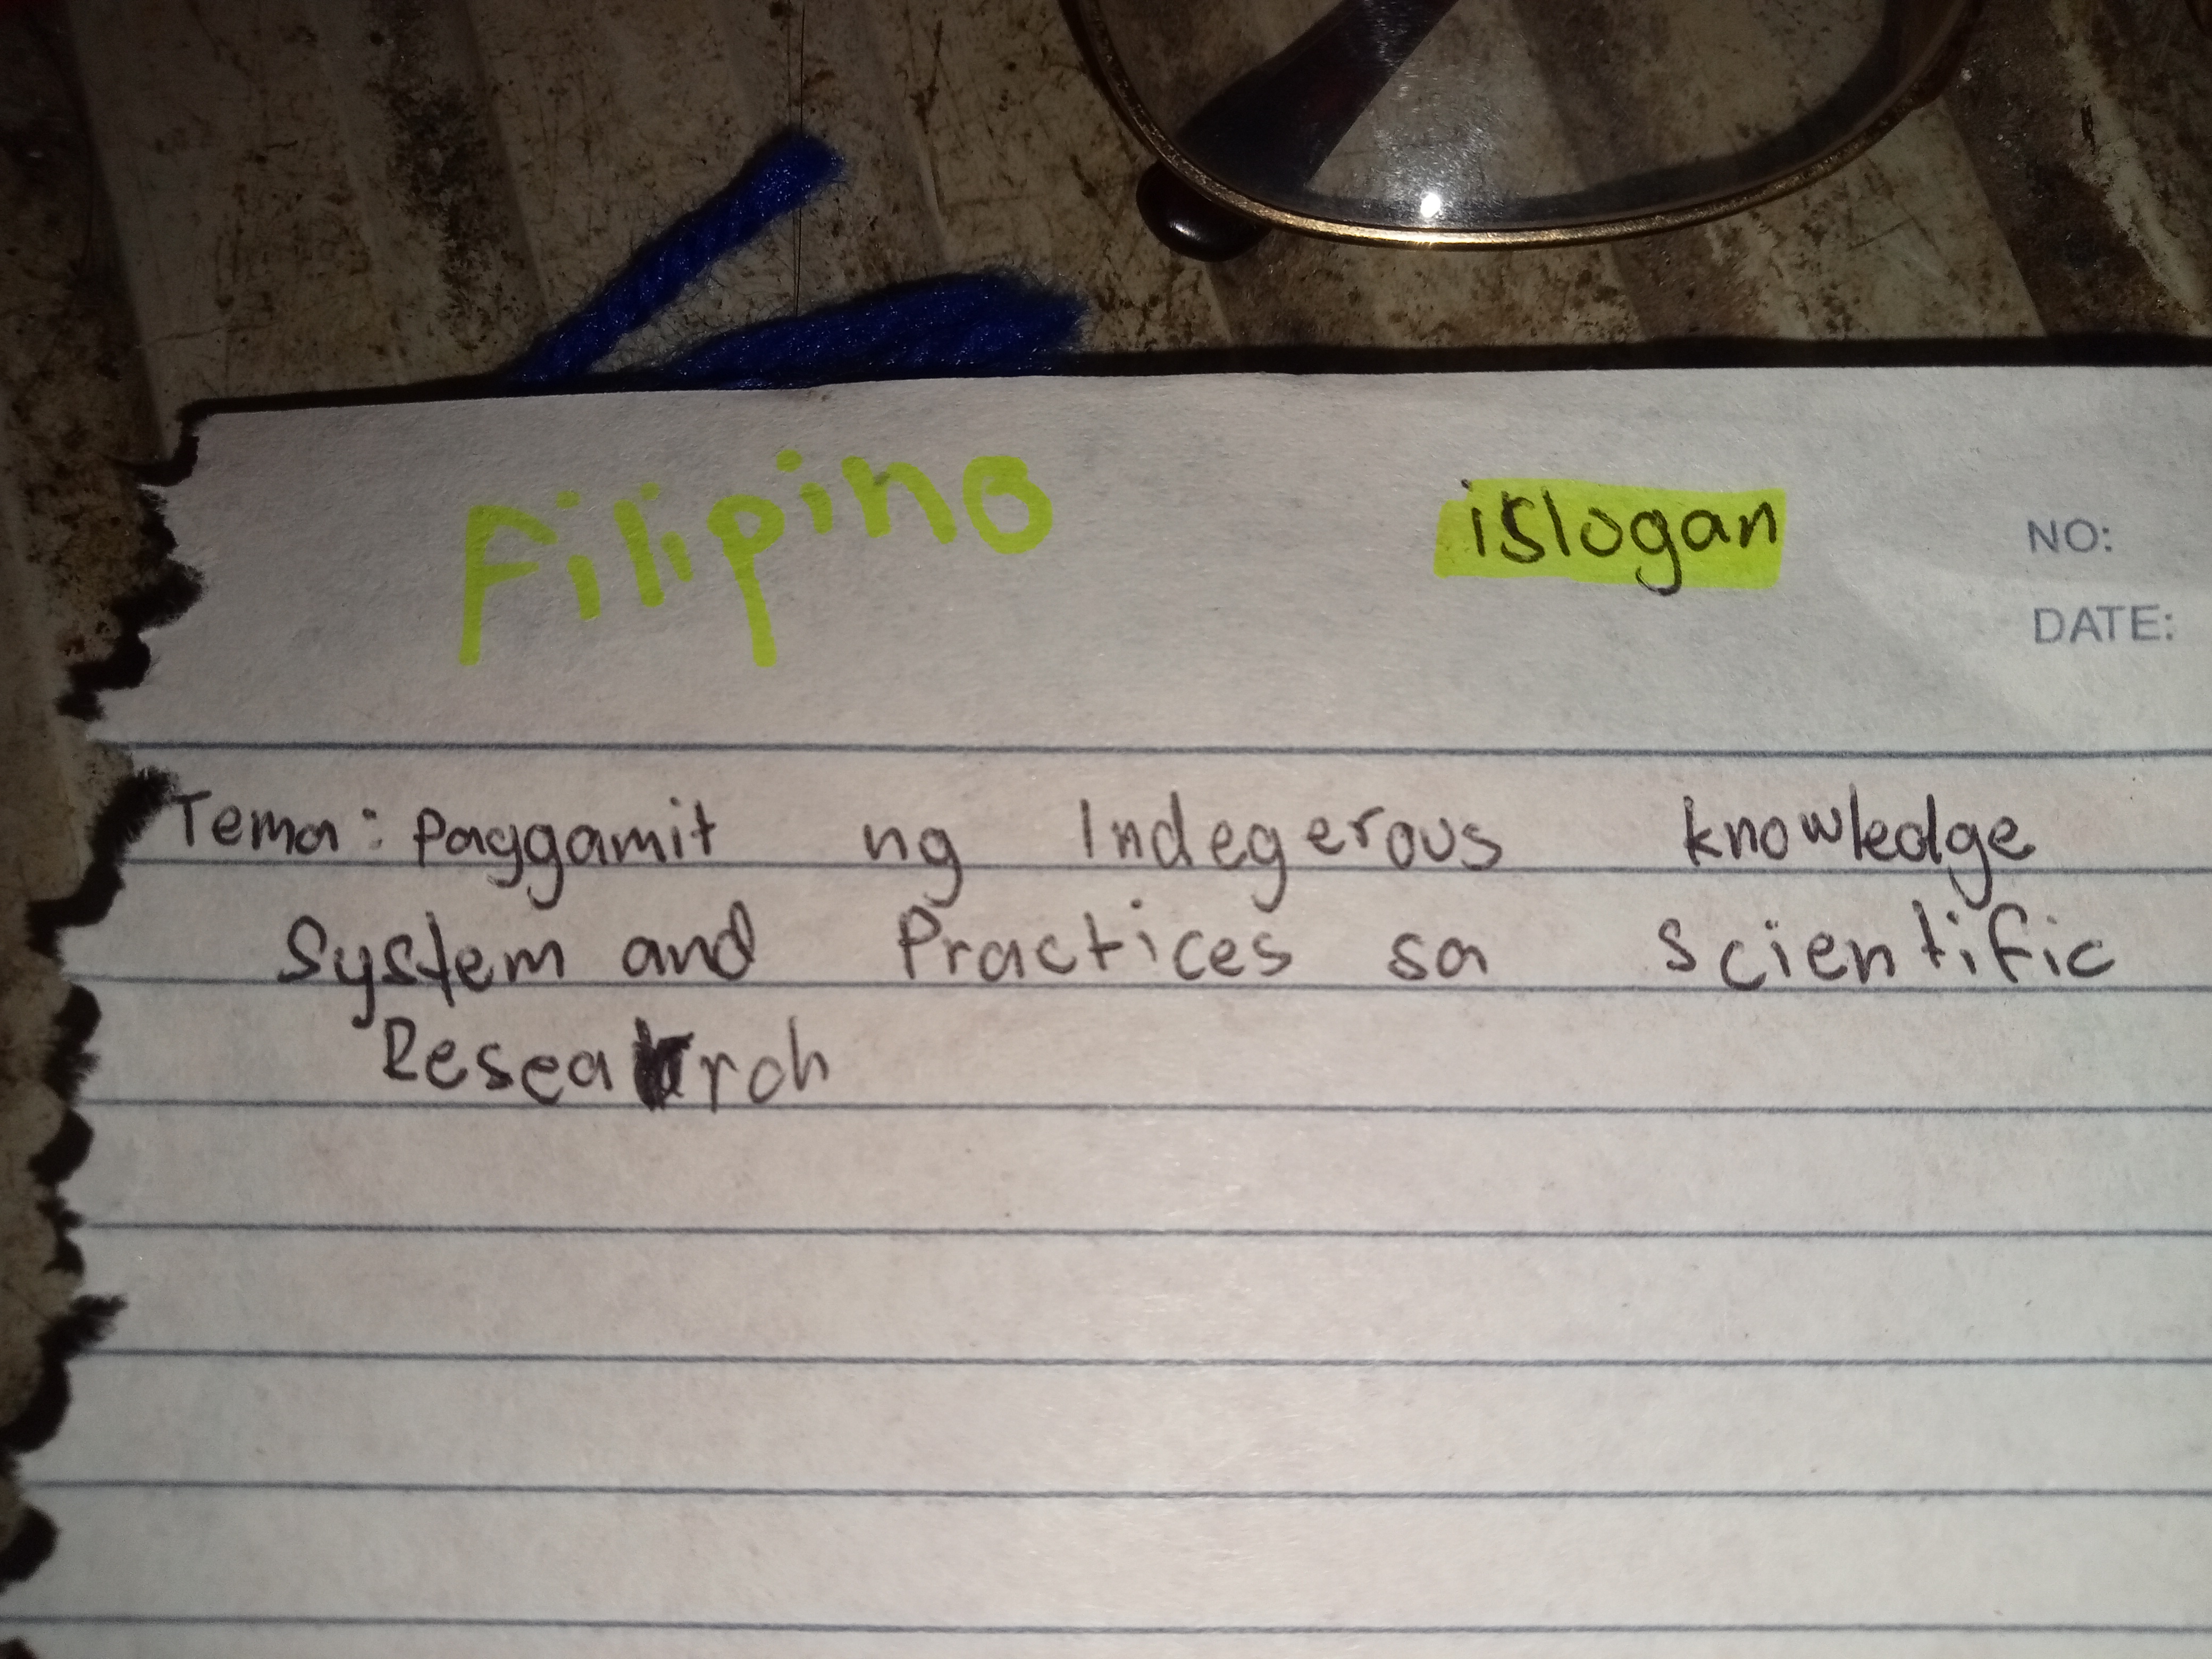 Filipino
islogan
NO:
DATE:
Tema: Paggamit ng Indegerous knowledge
System and Practices sa Scientific
Research